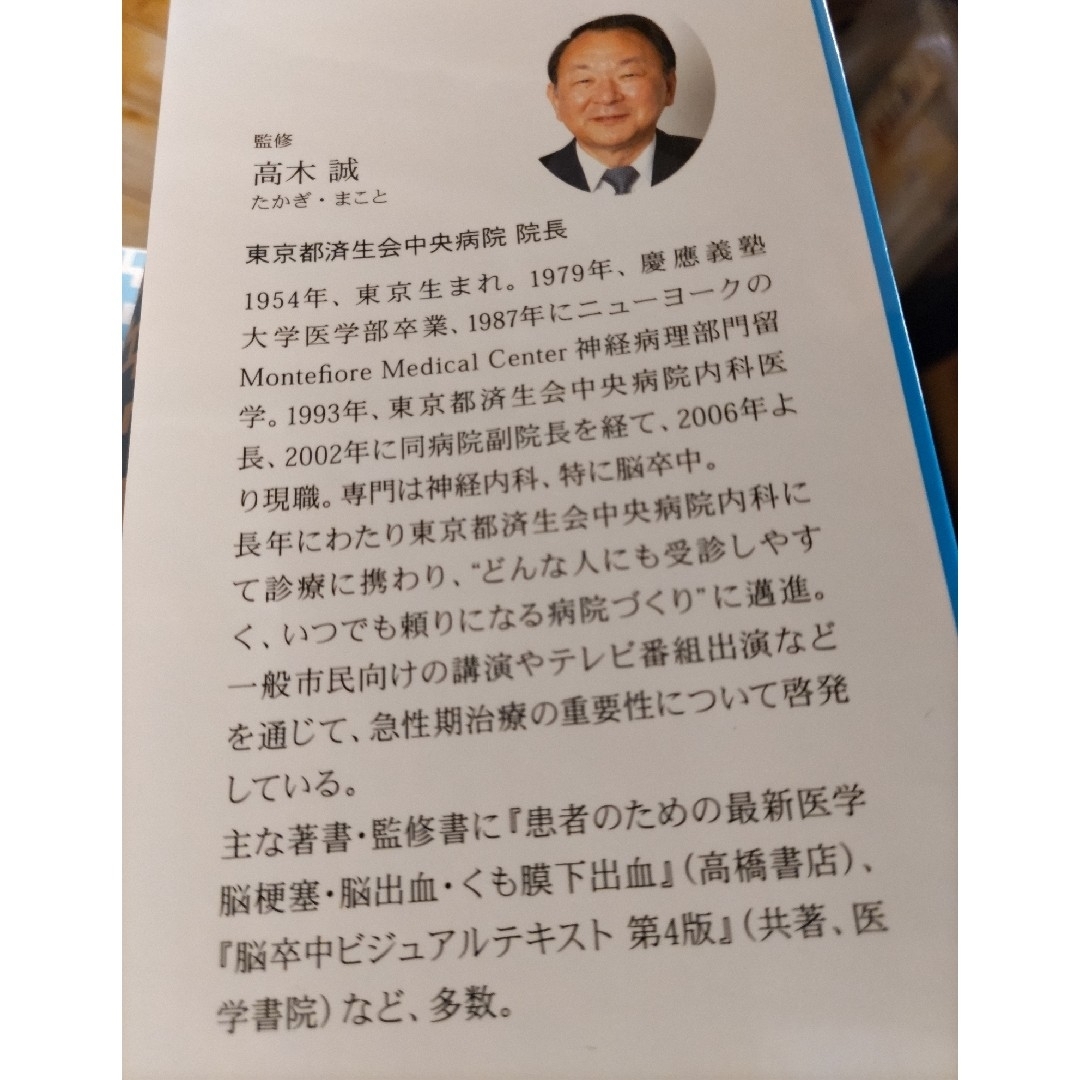 監修
高木 誠
たかぎ・まこと
東京都済生会中央病院 院長
1954年、東京生まれ。1979年、慶應義塾
大学医学部卒業、1987年にニューヨークの
Montefiore Medical Center 神経病理部門留
学。1993年、東京都済生会中央病院内科医
長、2002年に同病院副院長を経て、2006年よ
り現職。専門は神経内科、特に脳卒中。
長年にわたり東京都済生会中央病院内科に
て診療に携わり、“どんな人にも受診しやす
く、いつでも頼りになる病院づくり”に邁進。
一般市民向けの講演やテレビ番組出演など
を通じて、急性期治療の重要性について啓発
している。
主な著書・監修書に『患者のための最新医学
脳梗塞・脳出血・くも膜下出血』（高橋書店）、
『脳卒中ビジュアルテキスト 第4版』（共著、医
学書院）など、多数。